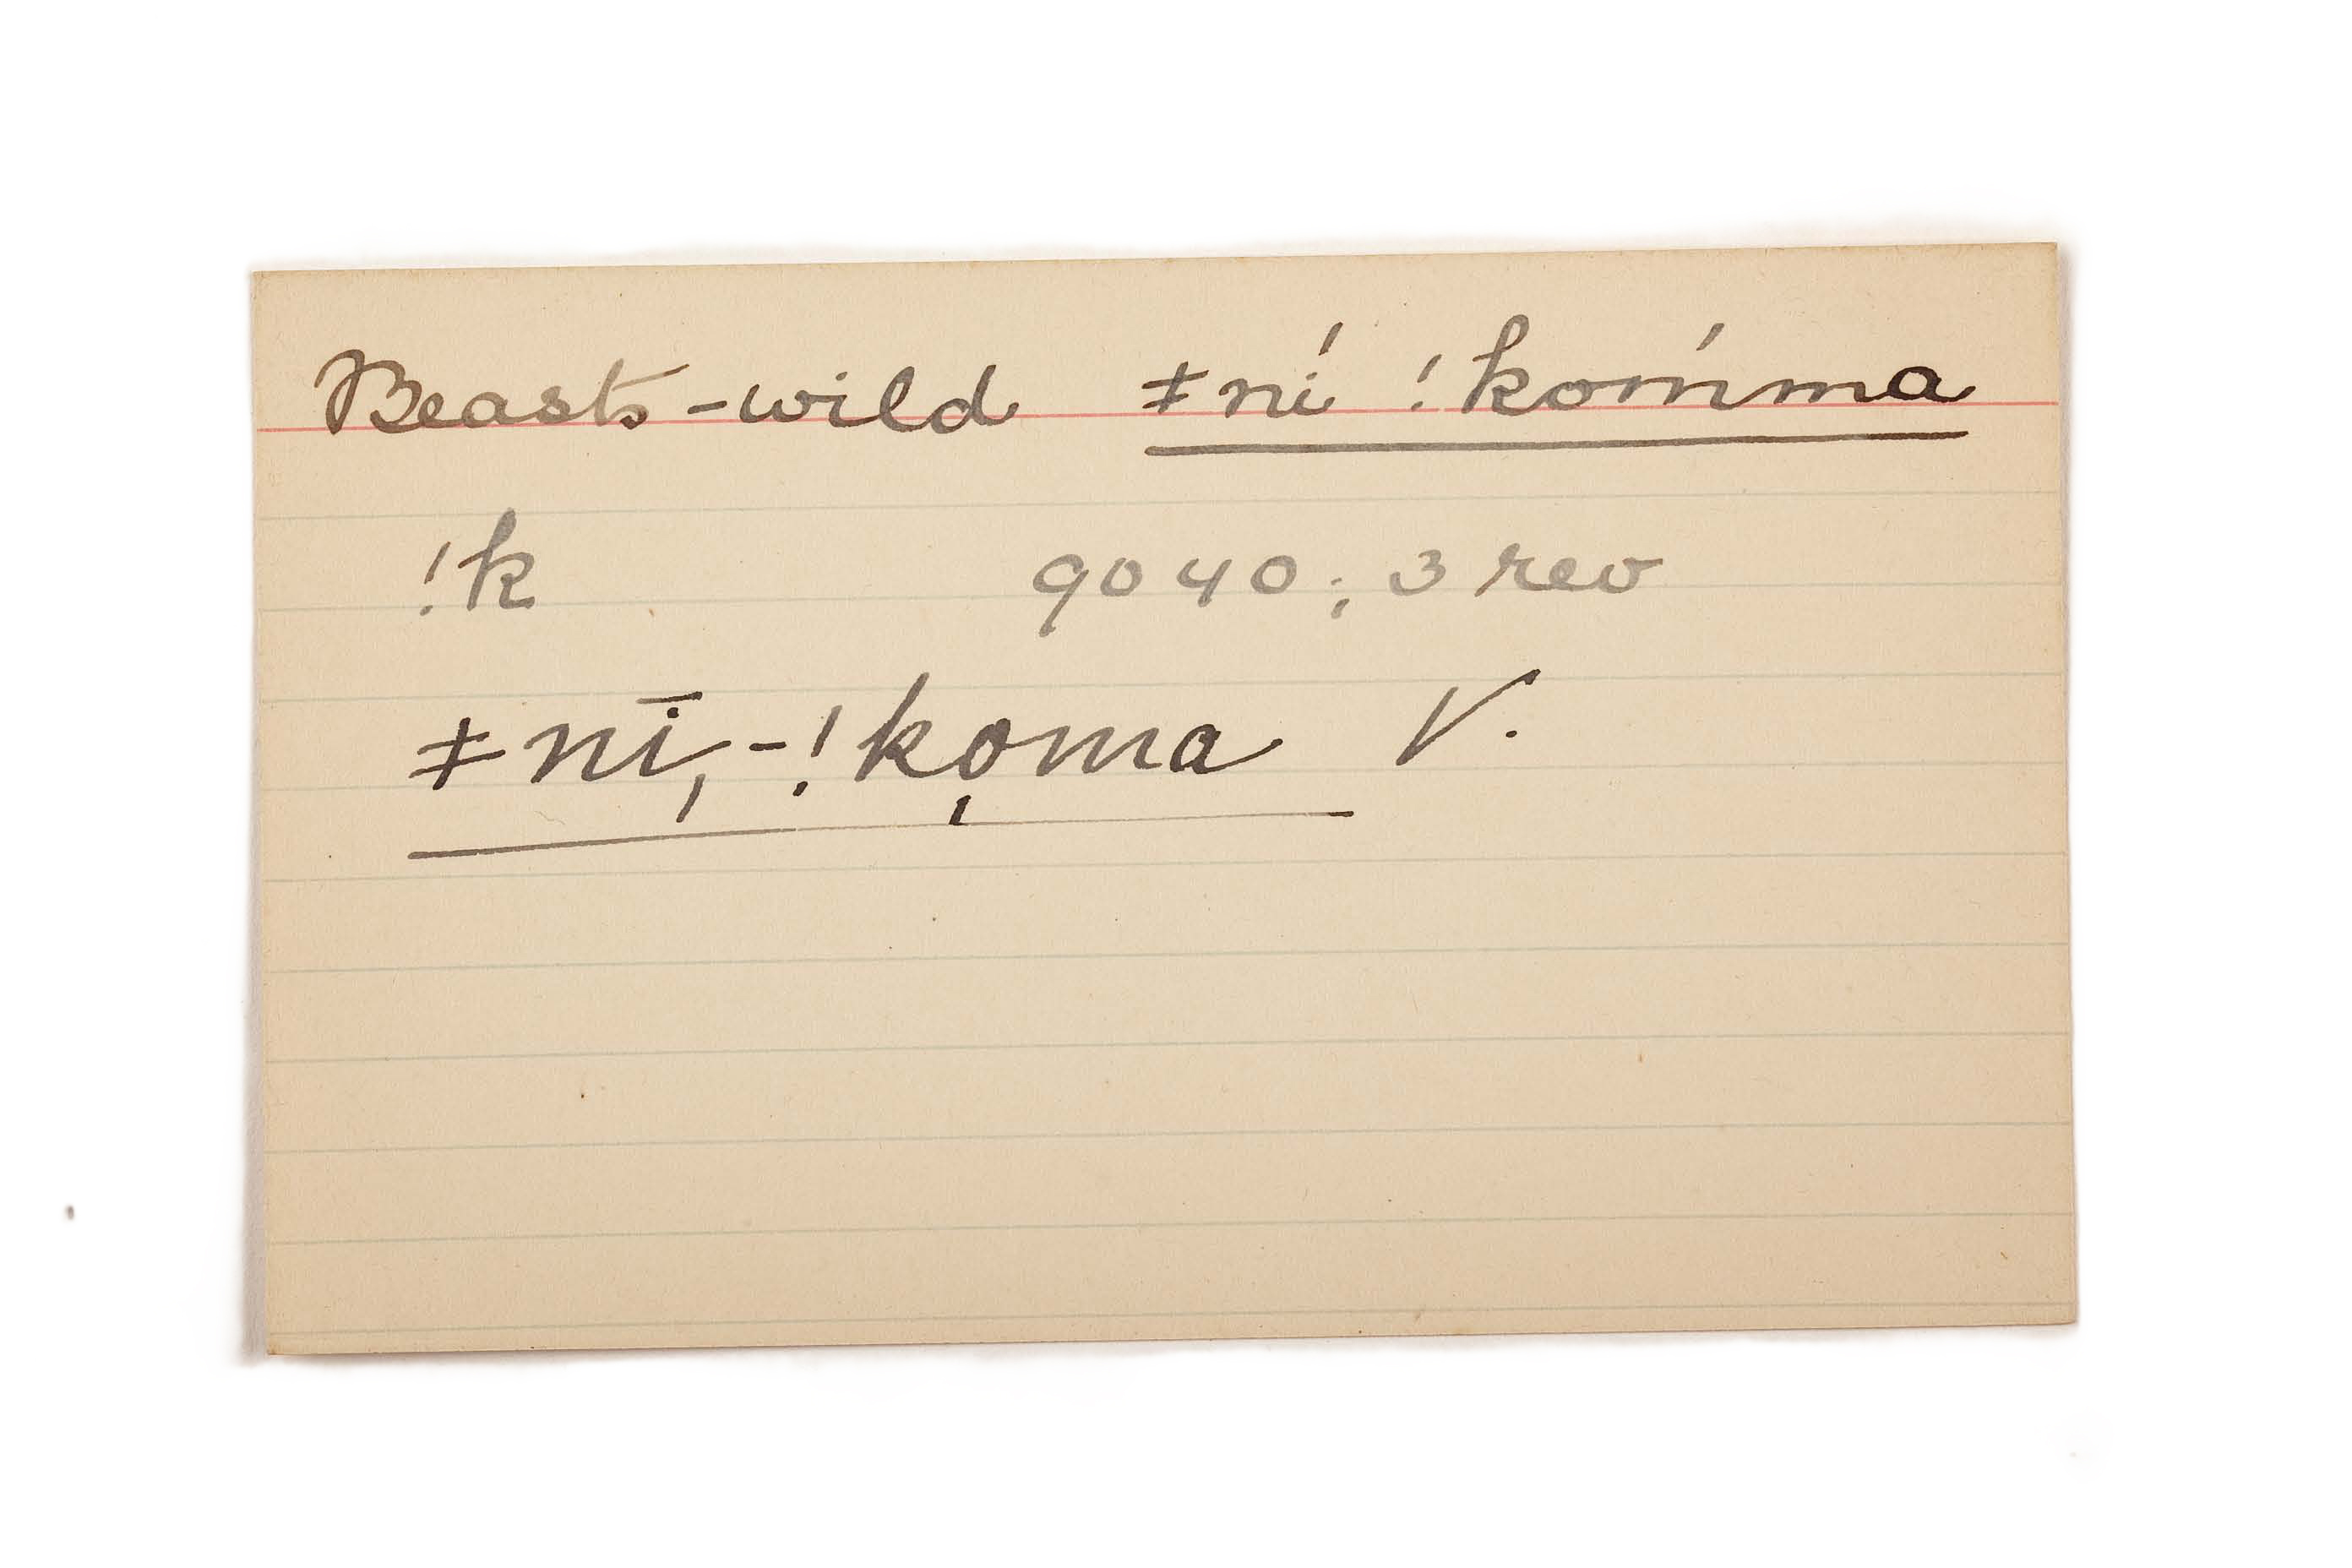 Beasts - wild ǂní !kom̍ma
!k 9040; 3 rev
ǂnī, - !ko̩ma V.